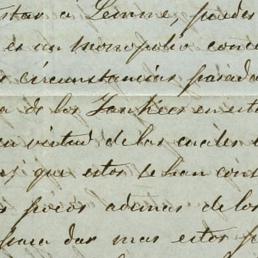 estar á Lemme, puedes
es un monopolio conce
s circunstancias pasada
a de los Yankees en esto
en virtud de las cuales e
que estos se han cons
s pocos ademas de los
para dar mas estos p